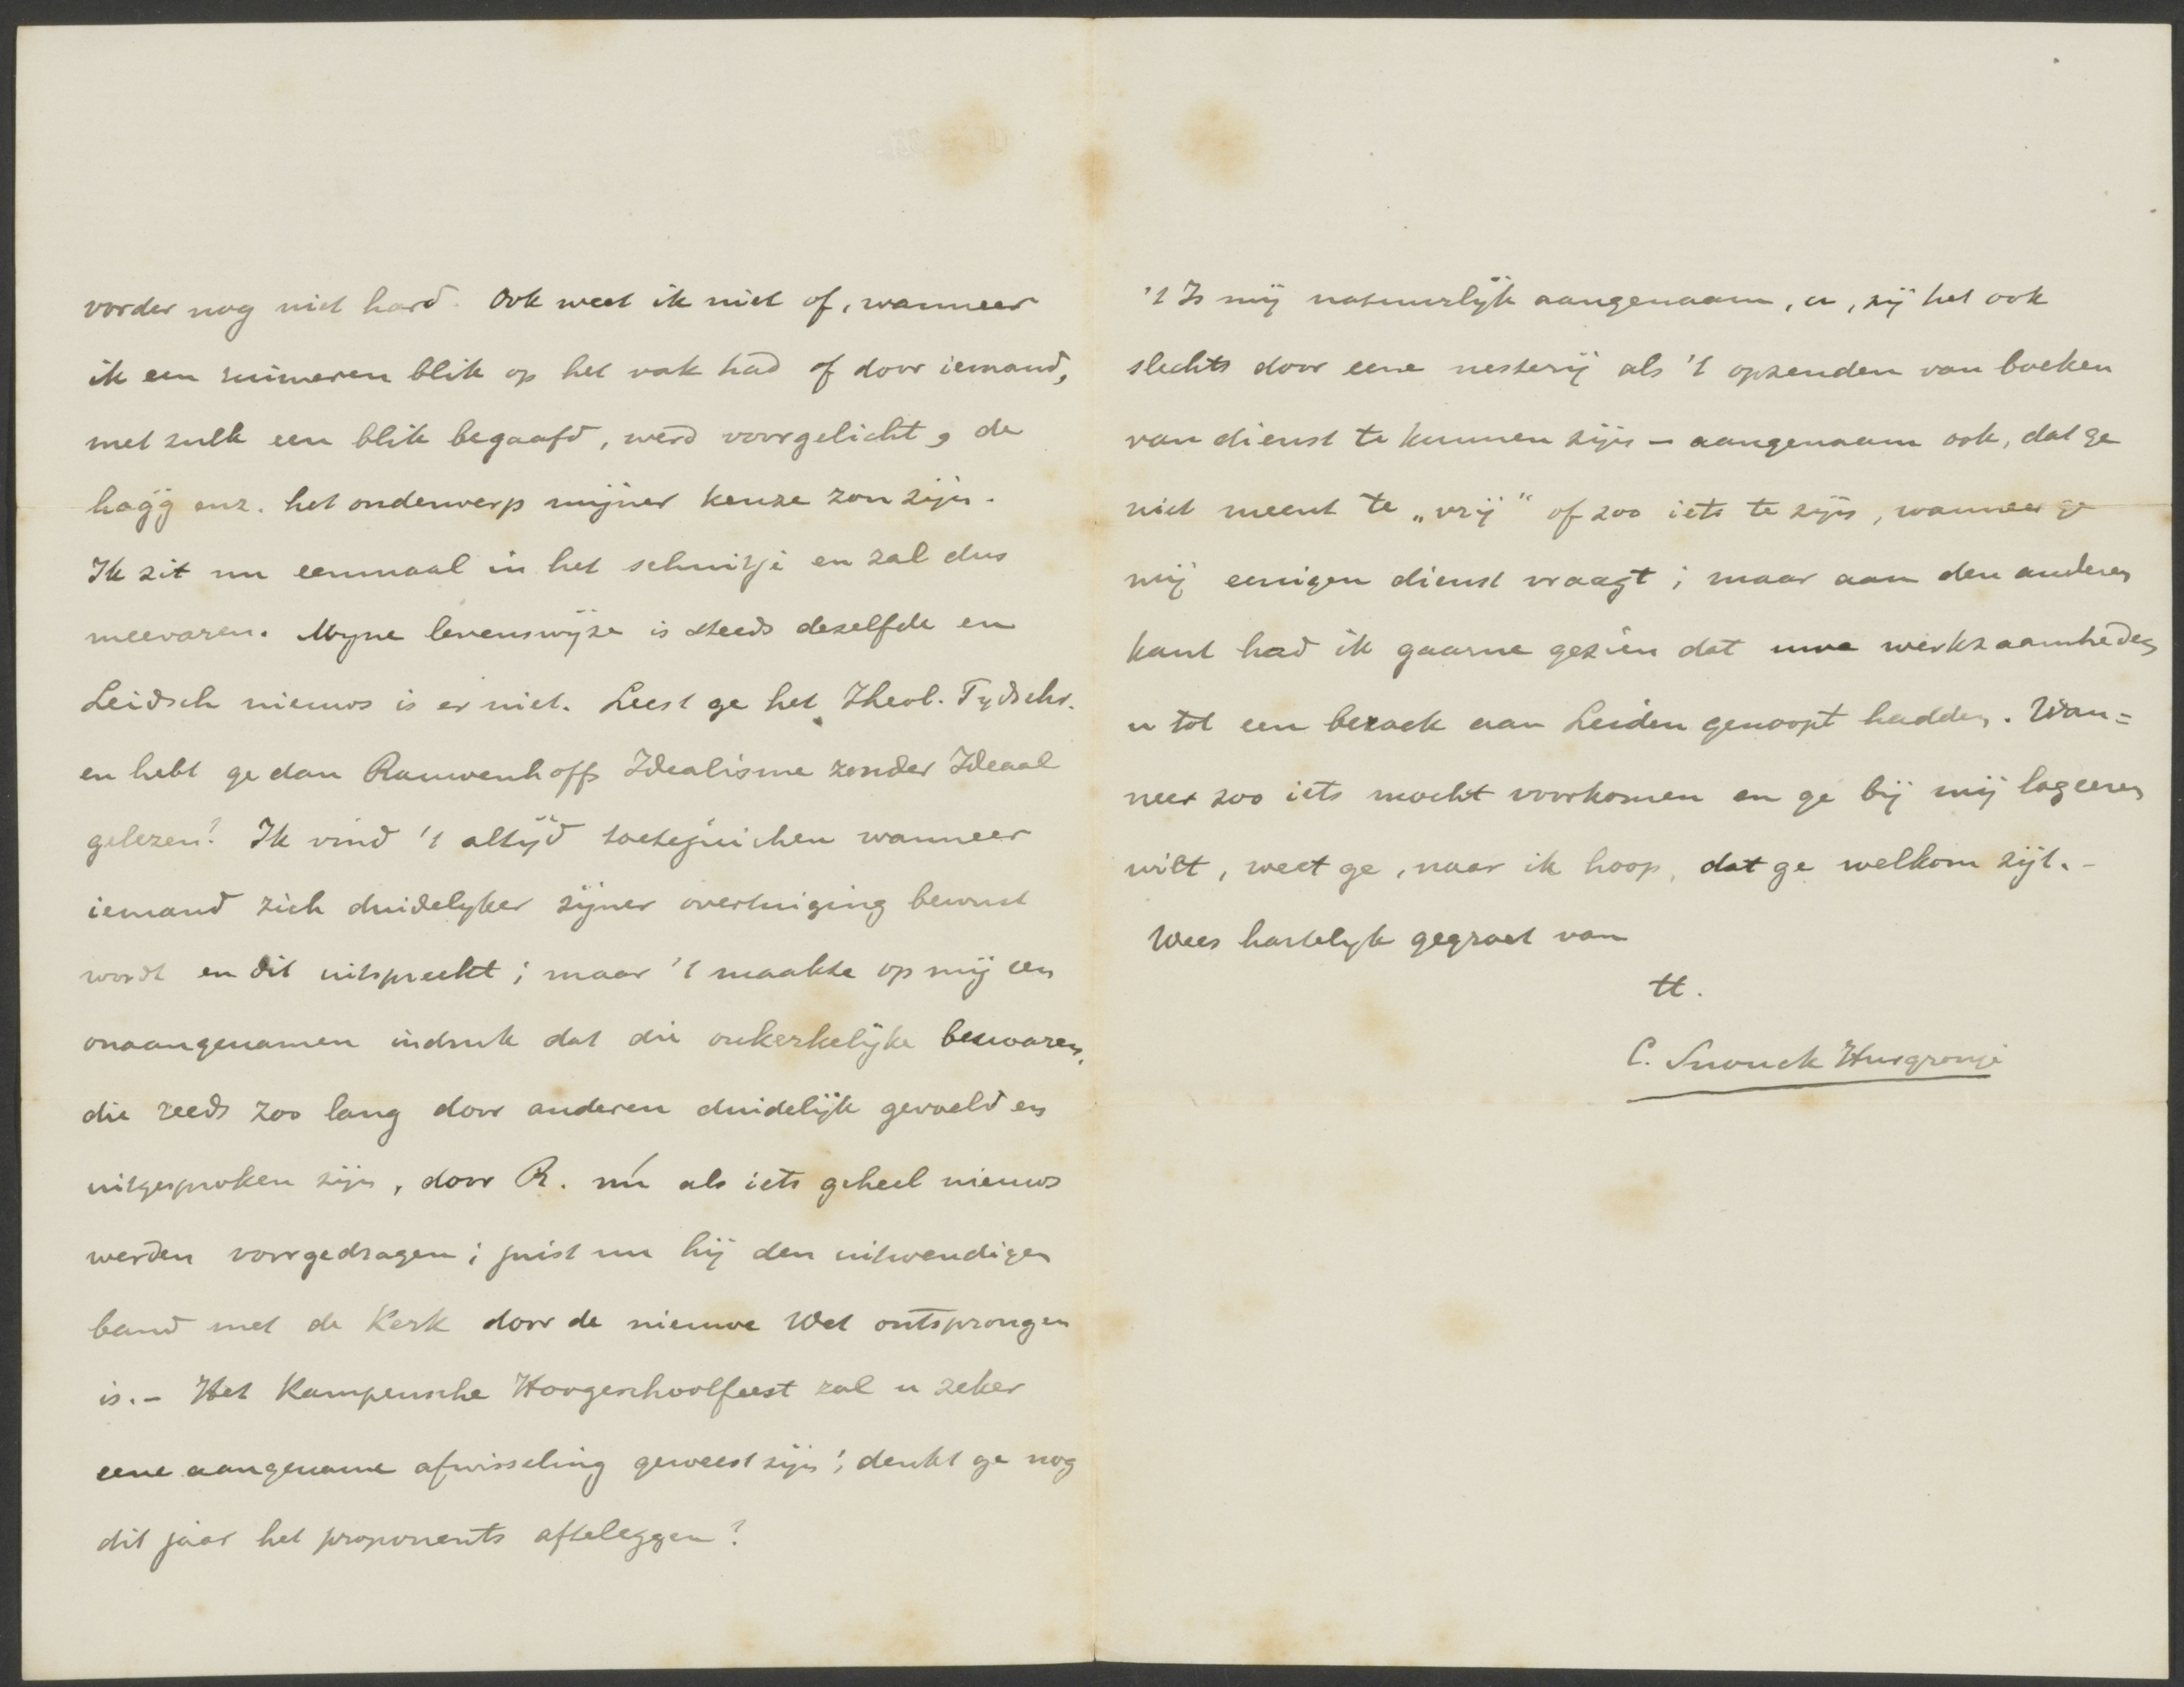 vorder nog niet hard. Ook weet ik niet of, wanneer
ik een ruimeren blik op het vak had of door iemand,
met zulk een blik begaafd, werd voorgelicht, de
hağğ enz. het onderwerp mijner keuze zou zijn.
Ik zit nu eenmaal in het schuitje en zal dus
meevaren. Myne levenswyze is steeds dezelfde en
Leidsch nieuws is er niet. Leest ge het Theol. Tydschr.
en hebt ge dan Rauwenhoffs Idealisme zonder Ideaal
gelezen? Ik vind 't altijd toetejuichen wanneer
iemand zich duidelyker zijner overtuiging bewust
wordt en dit uitspreekt; maar 't maakte op mij een
onaangenamen indruk dat die onkerkelijke bezwaren,
die reeds zoo lang door anderen duidelijk gevoeld en
uitgesproken zijn, door R. nú als iets geheel nieuws
werden voorgedragen; juist nu hij den uitwendigen
band met de Kerk door de nieuwe Wet ontsprongen
is. – Het Kampensche Hoogeschoolfeest zal u zeker
eene aangename afwisseling geweest zijn; denkt ge nog
dit jaar het proponents afteleggen?
't Is mij natuurlijk aangenaam, u, zij het ook
slechts door eene nesterij als 't opzenden van boeken
van dienst te kunnen zijn – aangenaam ook, dat ge
niet meent te „vrij“ of zoo iets te zijn, wanneer ge
mij eenigen dienst vraagt; maar aan den anderen
kant had ik gaarne gezien dat uwe werkzaamheden
u tot een bezoek aan Leiden genoopt hadden. Wan=
neer zoo iets mocht voorkomen en ge bij mij logeeren
wilt, weet ge, naar ik hoop, dat ge welkom zijt. –
Wees hartelyk gegroet van
tt.
C. Snouck Hurgronje